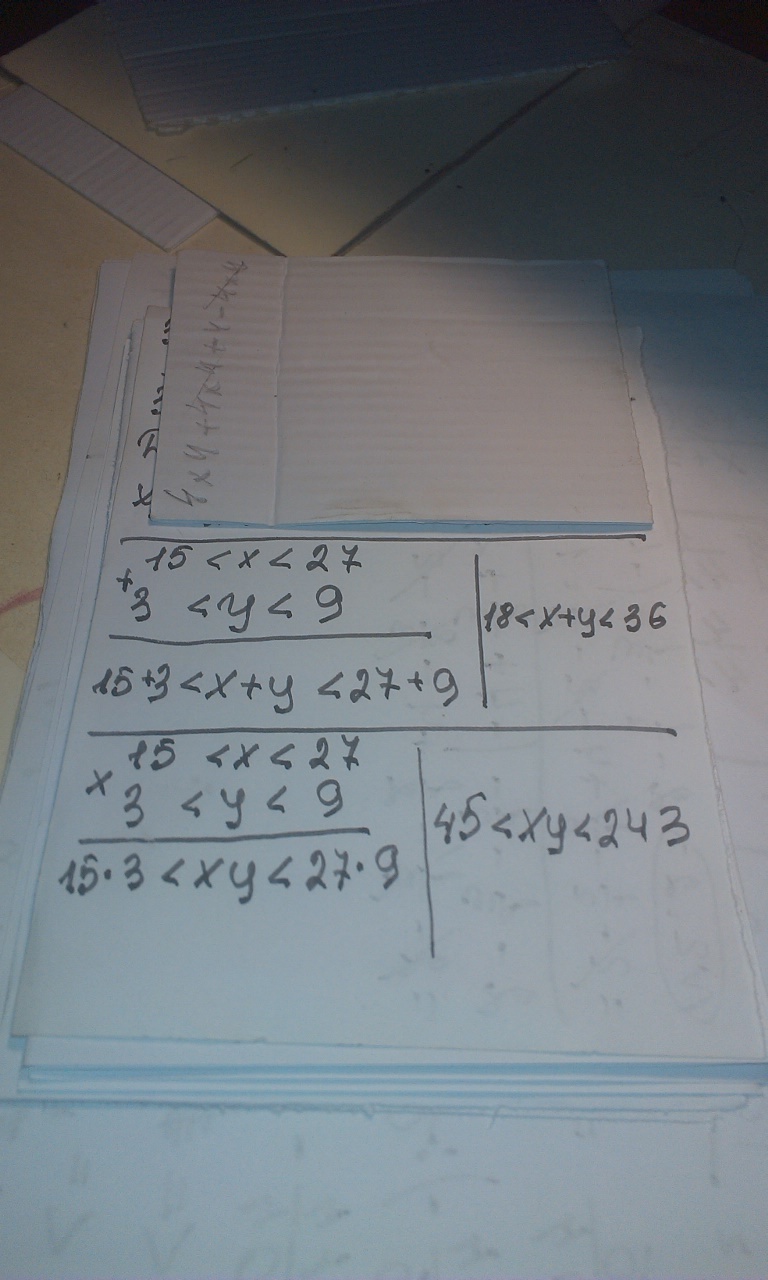 4xy+4x4+4-4x4
+ 15 < x < 27
3 < y < 9
15+3 < x+y < 27+9
18 < x+y < 36
x 15 < x < 27
3 < y < 9
15·3 < xy < 27·9
45 < xy < 243